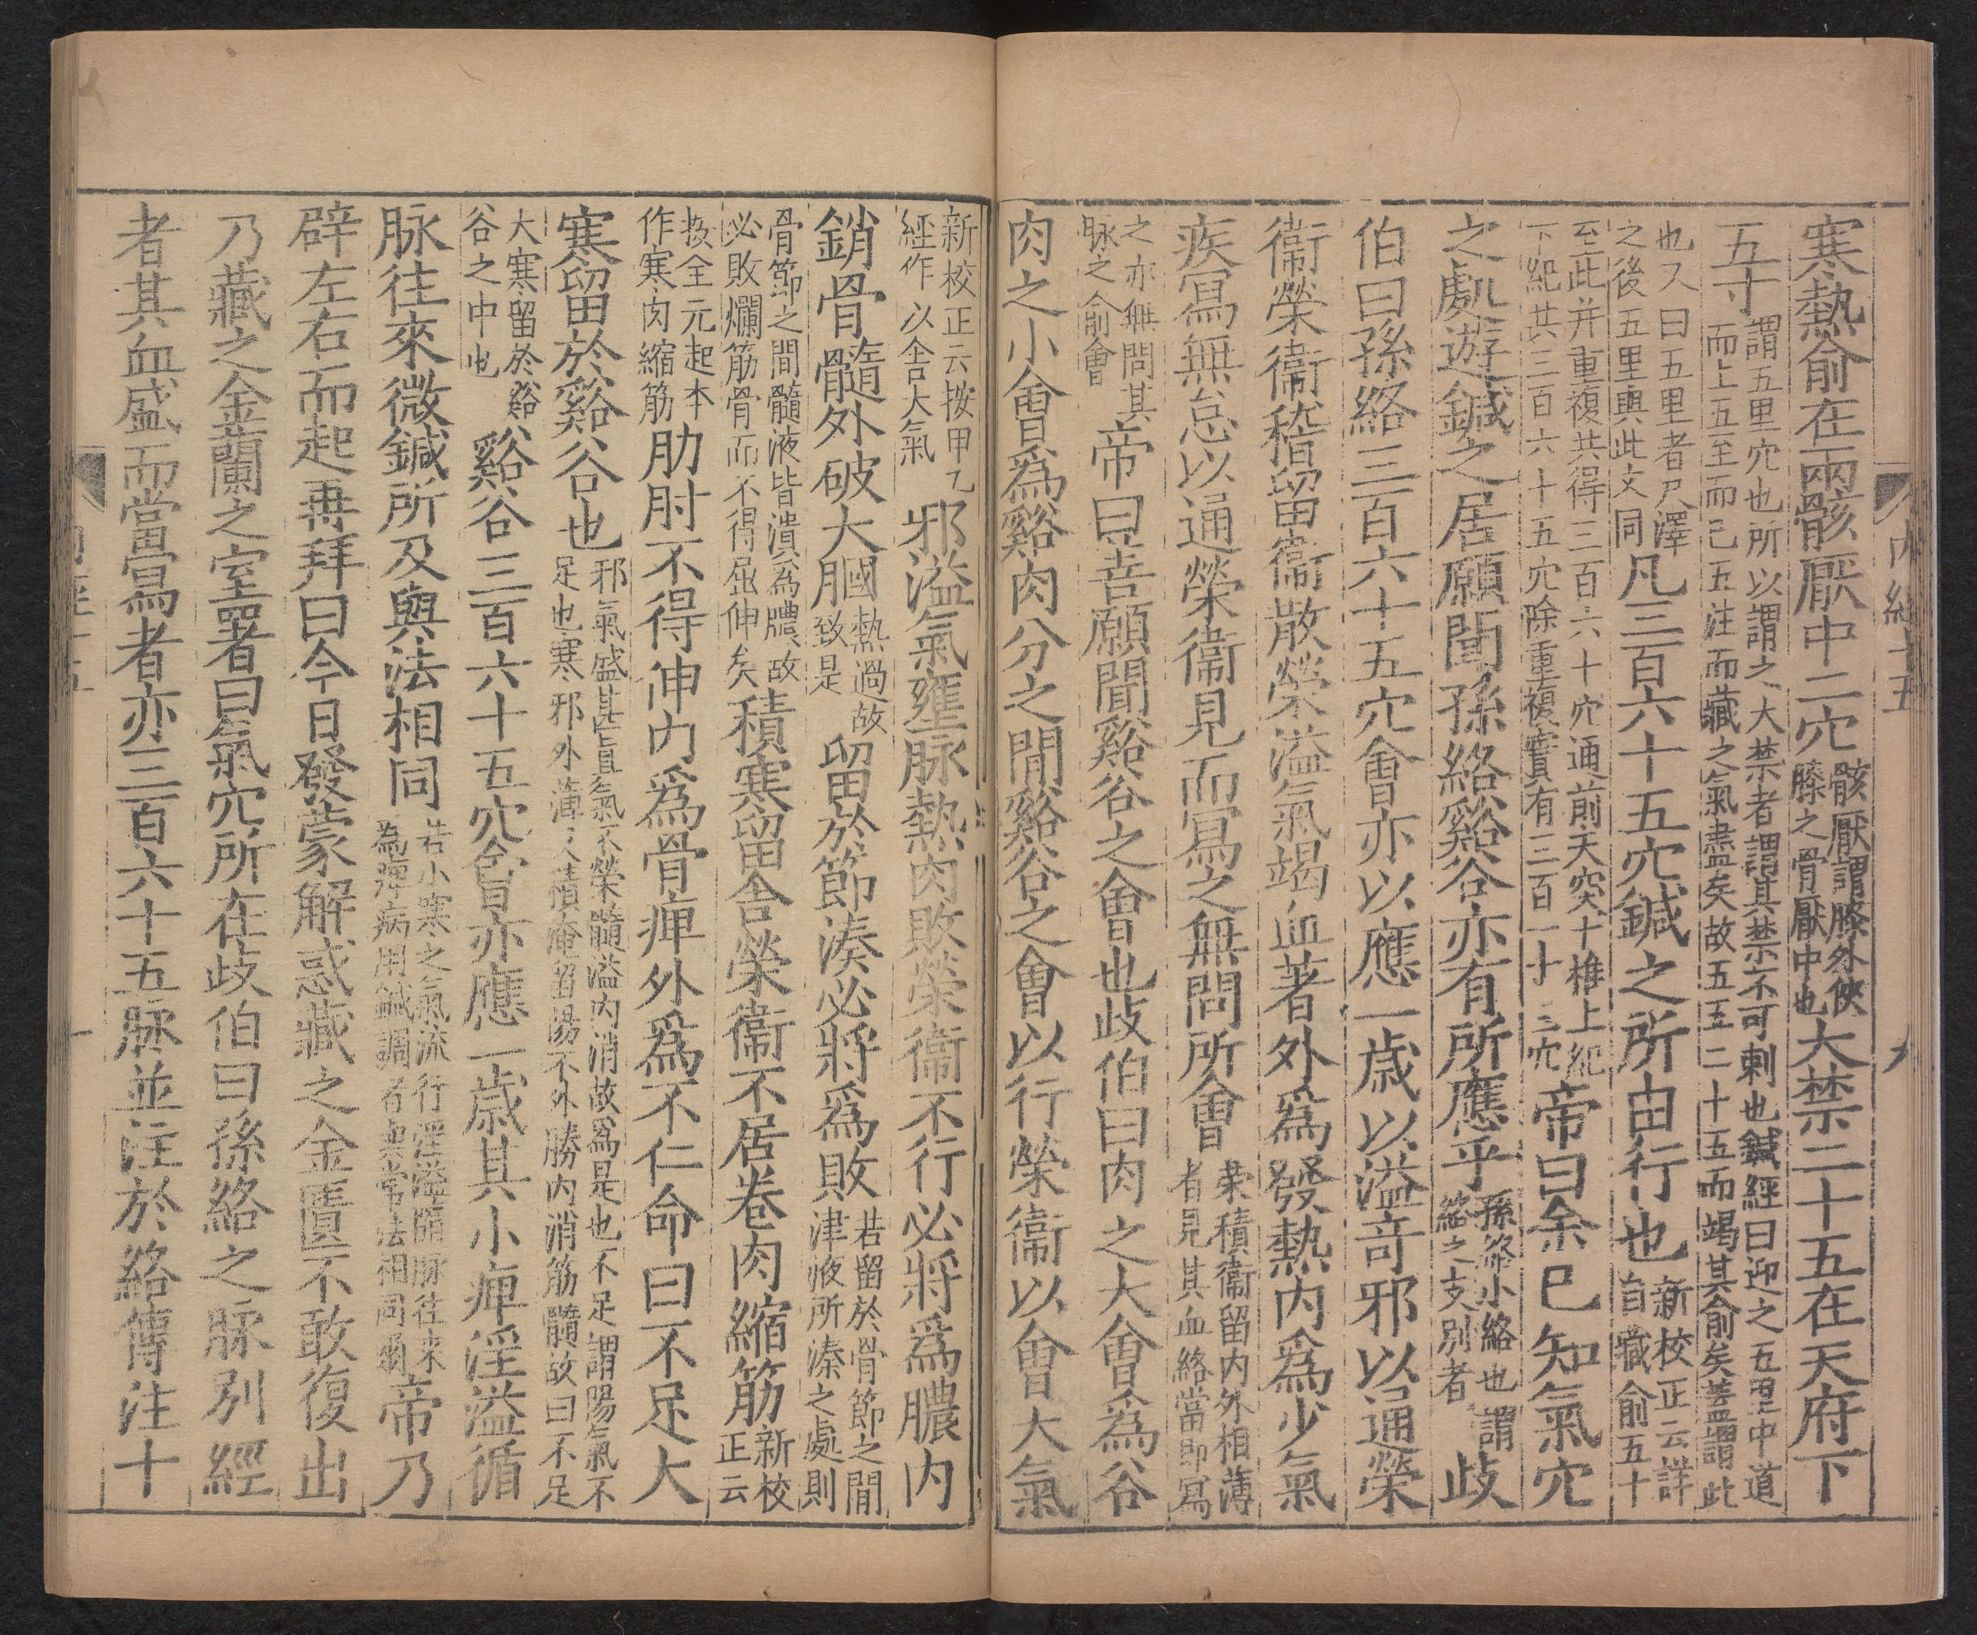 寒熱俞在兩骸厭中二穴骸厭謂膝外俠膝之骨厭中也大禁二十五在天府下
五寸謂五里穴也所以謂之大禁者謂其禁不可刺也鍼經曰迎之五里中道而上五至而已五注而藏之氣盡矣故五五二十五而竭其俞矣蓋謂此
也又曰五里者尺澤之後五里與此文同凡三百六十五穴鍼之所由行也新校正云詳自藏俞五十
至此并重複共得三百六十穴通前天突十椎上紀下紀共三百六十五穴除重複實有三百一十三穴帝曰余已知氣穴
之處遊鍼之居願聞孫絡谿谷亦有所應乎孫絡小絡也謂絡之支別者歧
伯曰孫絡三百六十五穴會亦以應一歲以溢奇邪以通榮
衞榮衞稽留衞散榮溢氣竭血著外爲發熱內爲少氣
疾寫無怠以通榮衞見而寫之無問所會榮積衞留內外相薄者見其血絡當即寫
之亦無問其脉之俞會帝曰善願聞谿谷之會也歧伯曰肉之大會爲谷
肉之小會爲谿肉分之閒谿谷之會以行榮衞以會大氣
內經十五
九
新校正云按甲乙經作以舍大氣邪溢氣壅脉熱肉敗榮衞不行必將爲膿內
銷骨髓外破大膕熱過故致是留於節湊必將爲敗若留於骨節之閒津液所湊之處則
骨節之間髓液皆潰爲膿故必敗爛筋骨而不得屈伸矣積寒留舍榮衞不居卷肉縮筋新校正云
按全元起本作寒肉縮筋肋肘不得伸內爲骨痺外爲不仁命曰不足大
寒留於谿谷也邪氣盛甚眞氣不榮髓溢內消故爲是也不足謂陽氣不足也寒邪外薄久積淹留陽不外勝內消筋髓故曰不足
大寒留於谿谷之中也谿谷三百六十五穴會亦應一歲其小痺淫溢循
脉往來微鍼所及與法相同若小寒之氣流行淫溢隨脉往來爲痺病用鍼調者與常法相同爾帝乃
辟左右而起再拜曰今日發蒙解惑藏之金匱不敢復出
乃藏之金蘭之室署曰氣穴所在歧伯曰孫絡之脉別經
者其血盛而當寫者亦三百六十五脉並注於絡傳注十